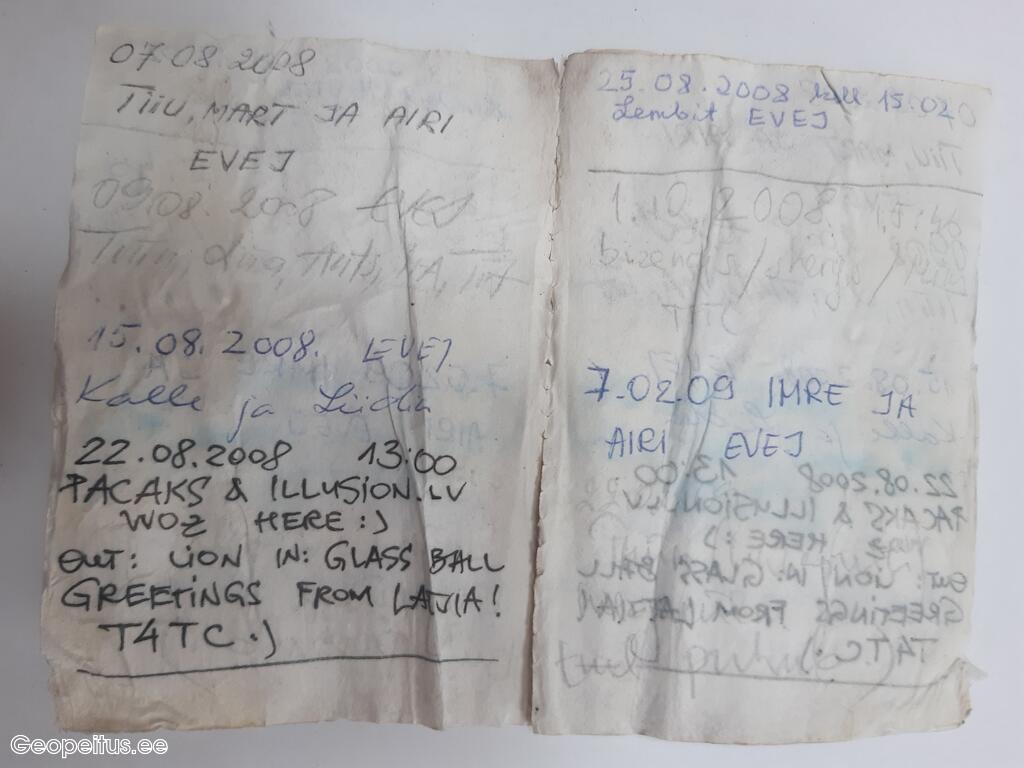 07.08.2008
TIIU, MART JA AIRI
EVEJ
09.08.2008
15.08.2008. EVEJ
Kalle ja Liidia
22.08.2008 13:00
PACAKS & ILLUSION.LV
WOZ HERE :)
OUT: LION IN: GLASS BALL
GREETINGS FROM LATVIA!
T4TC :)
25.08.2008 kell 15.02
Lembit EVEJ
1.10.2008
7.02.09 IMRE JA
AIRI EVEJ
Geopeitus.ee